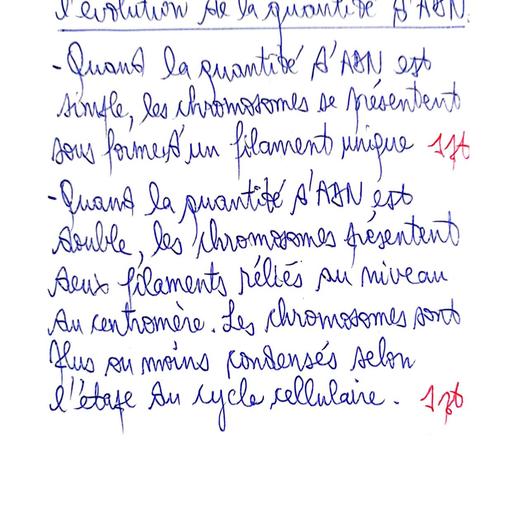 l'évolution de la quantité d'ADN.
- Quand la quantité d'ADN est
simple, les chromosomes se présentent
sous forme d'un filament unique 1pt
- Quand la quantité d'ADN est
double, les chromosomes présentent
deux filaments réliés au niveau
du centromère. Les chromosomes sont
plus ou moins condensés selon
l'étape du cycle cellulaire. 1pt